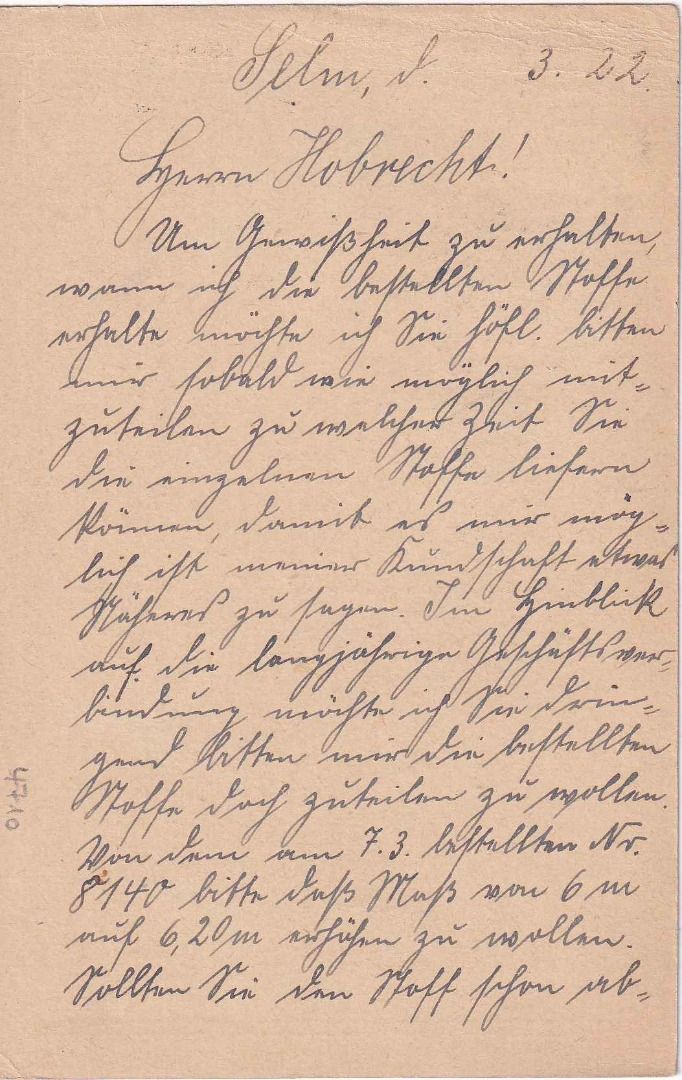 Selm, d. 3. 22.
Herrn Hobrecht!
Um Gewißheit zu erhalten,
wann ich die bestellten Stoffe
erhalte möchte ich Sie höfl. bitten
mir sobald wie möglich mit-
zuteilen zu welcher Zeit Sie
die einzelnen Stoffe liefern
können, damit es mir mög-
lich ist meiner Kundschaft etwas
Näheres zu sagen. Im Hinblick
auf die langjährige Geschäftsver-
bindung möchte ich Sie drin-
gend bitten mir die bestellten
Stoffe doch zuteilen zu wollen.
Von dem am 7.3. bestellten Nr.
8140 bitte daß Maß von 6 m
auf 6,20 m erhöhen zu wollen.
Sollten Sie den Stoff schon ab-